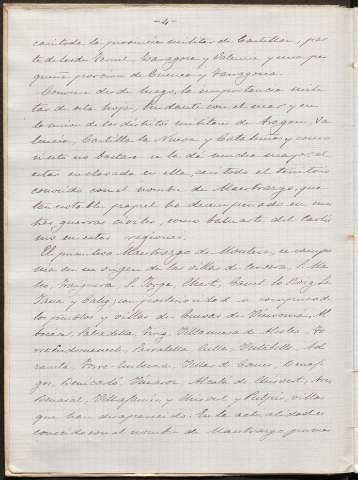 -4-
cantoda la provincia militar de Castellon, par
te de las de Teruel, Zaragoza y Valencia, y una pe
queña porcion de Cuenca y Tarragona.
Conocese desde luego, la importancia mili
tar de esta hoja, lindante con el mar y en
la union de los distritos militares de Aragon, Va
lencia, Castilla la Nueva y Cataluña; y como
si esto no bastara se la dá mucho mayor, el
estar enclavado en ella, casi todo el territorio
conocido con el nombre de Maestrazgo, que
tan notable papel ha desempeñado en nues
tras guerras civiles, como baluarte del Carlis
mo en estas regiones.
El primitivo Maestrazgo de Montesa, se compo
nia en su origen de las villas de Cervera, S. Ma
teo, Traiguera, S. Jorge, Chert, Canet lo Roig, La
Jana y Calig, con posterioridad se
los pueblos y villas de Cuevas de Vinromá, Al
bocacer, Salsadella, Tirig, Villanueva de Alcolea, To
rre Endomenech, Sarratella,
Torre Embesora, Villar de Canes, Benaf
gos, Benicarló, Vinaroz, Alcalá de Chisvert, Ares
Benasal, Villafamés, y Chisvert y Pulpis, villas
que han desaparecido. En la actualidad es
conocido con el nombre de Maestrazgo